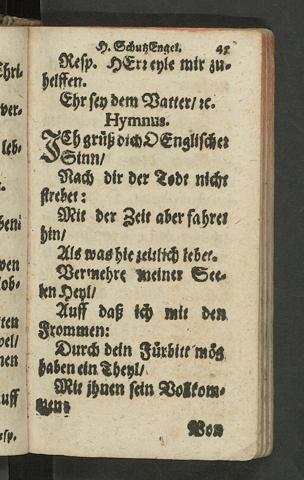 H. SchutzEngel. 41
Resp. HErr eyle mir zu-
helffen.
Ehr sey dem Vatter/ ꝛc.
Hymnus.
ICh grüß dich O Englischer
Sinn/
Nach dir der Todt nicht
strebet:
Mit der Zeit aber fahret
hin/
Als was hie zeitlich lebet.
Vermehre meiner See-
len Heyl/
Auff daß ich mit den
Frommen:
Durch dein Fürbitt mög
haben ein Theyl/
Mit ihnen sein Vollkom-
men:
Von